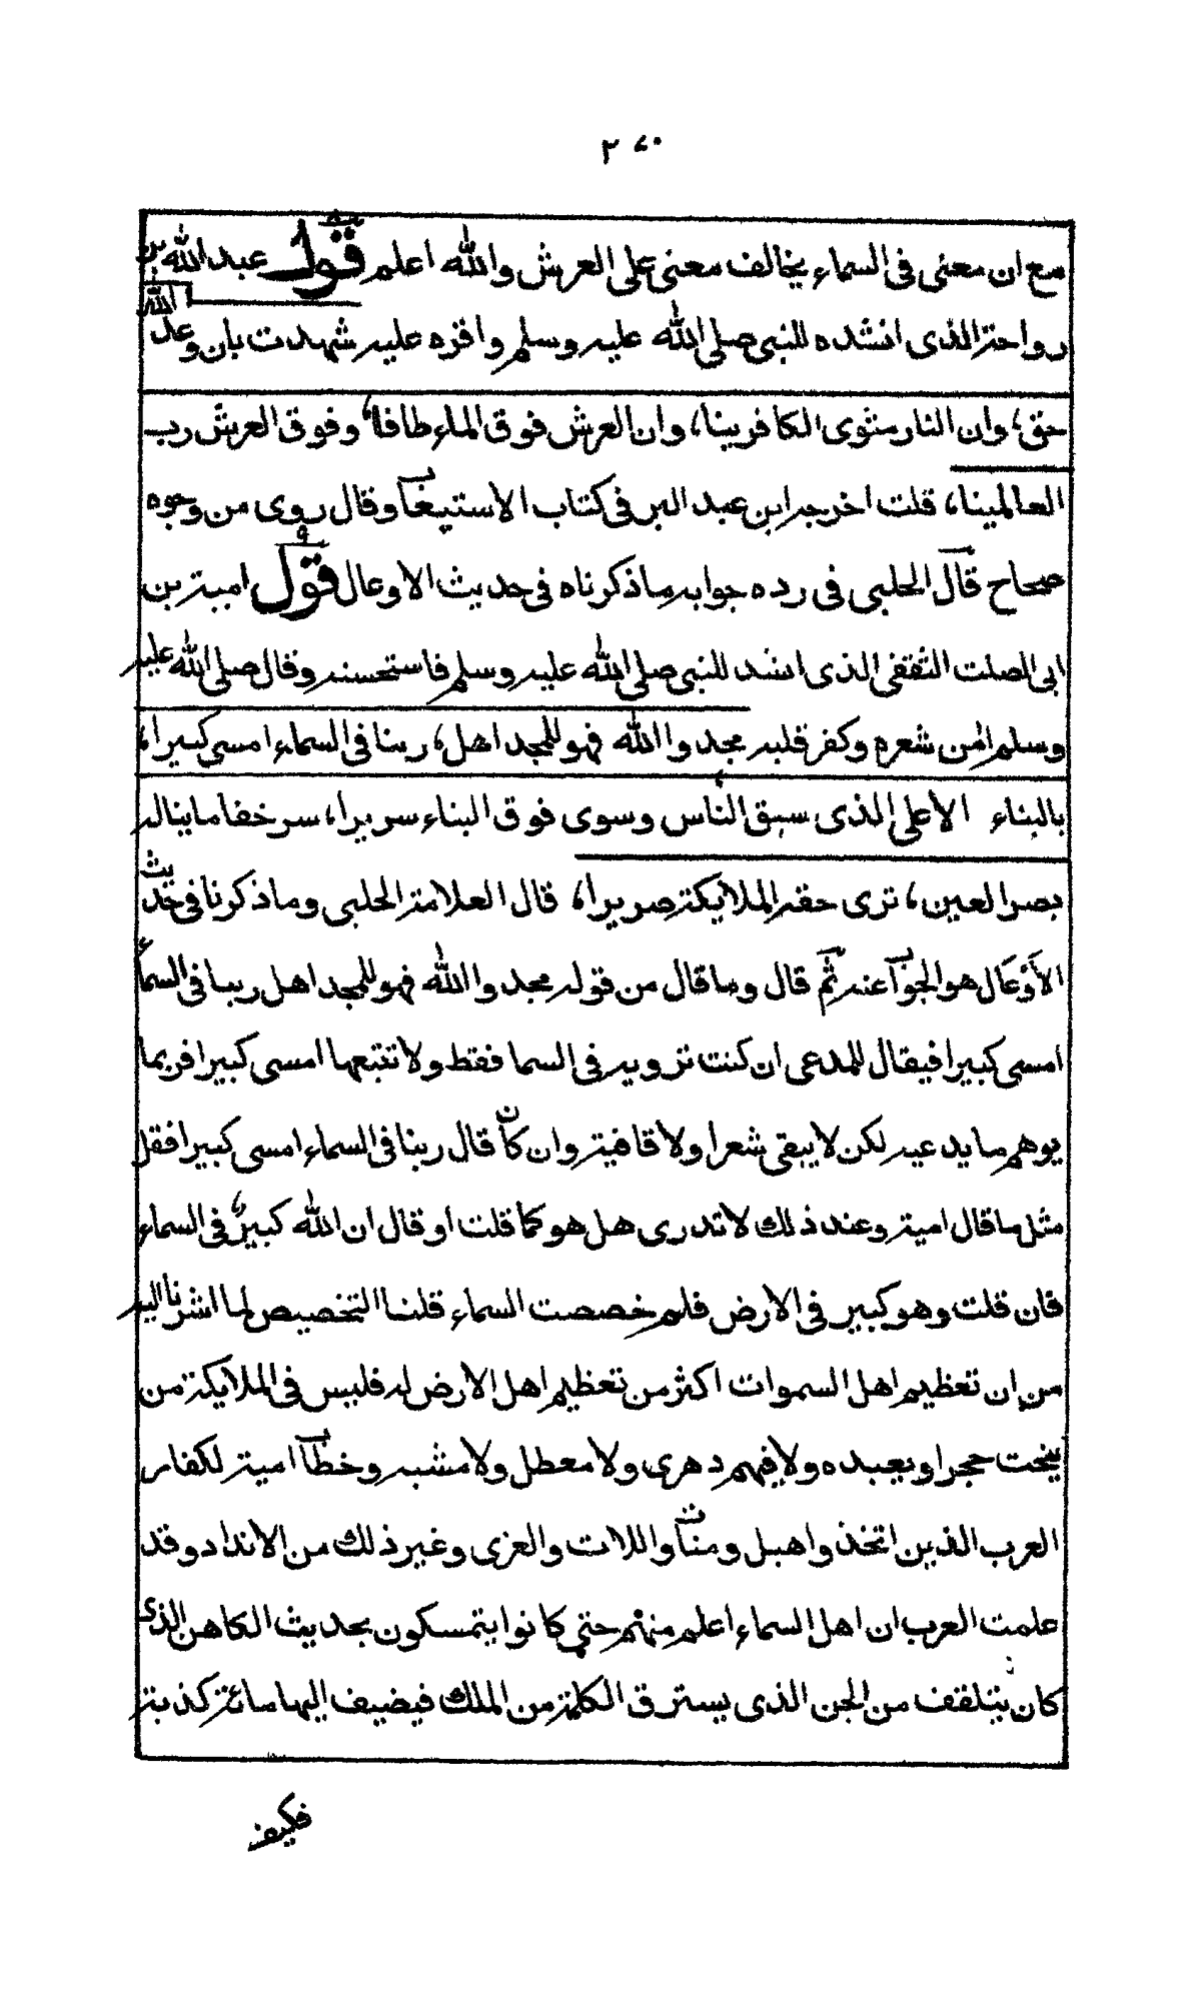 ٢٧٠
مع ان معنى فى السماء يخالف معنى على العرش والله اعلم قول عبد الله بن
رواحة الذى انشده للنبى صلى الله عليه وسلم واقره عليه شهدت بان وعد الله
حق، وان النار مثوى الكافرينا، وان العرش فوق الماء طافا، وفوق العرش رب
العالمينا، قلت اخرجه ابن عبد البر فى كتاب الاستيعاب وقال روى من وجوه
صحاح قال الحلبى فى رده جوابه ما ذكرناه فى حديث الاوعال قول امية بن
ابى الصلت الثقفى الذى انشد للنبى صلى الله عليه وسلم فاستحسنه وقال صلى الله عليه
وسلم امن شعره وكفر قلبه مجدوا الله فهو للمجد اهل، ربنا فى السماء امسى كبيرا،
بالبناء الاعلى الذى سبق الناس وسوى فوق البناء سريرا، سرخفا ما يناله
بصر العين، ترى حقه الملايكة صريرا، قال العلامة الحلبى وما ذكرنا فى حديث
الاوعال هو الجواب عنه ثم قال وما قال من قوله مجدوا الله فهو للمجد اهل ربنا فى السماء
امسى كبيرا فيقال للمدعى ان كنت ترويه فى السما فقط ولا تتبعها امسى كبيرا فربما
يوهم ما يدعيه لكن لا يبقى شعرا ولا قافية وان كان قال ربنا فى السماء امسى كبيرا فقل
مثل ما قال امية وعند ذلك لا تدرى هل هو كما قلت او قال ان الله كبير فى السماء
فان قلت وهو كبير فى الارض فلم خصصت السماء قلنا التخصيص لما اشرنا اليه
من ان تعظيم اهل السموات اكثر من تعظيم اهل الارض له فليس فى الملايكة من
ينحت حجرا ويعبده ولا فيهم دهرى ولا معطل ولا مشبه وخطاب امية لكفار
العرب الذين اتخذوا هبل ومنات واللات والعزى وغير ذلك من الانداد وقد
علمت العرب ان اهل السماء اعلم منهم حتى كانوا يتمسكون بحديث الكاهن الذى
كان يتلقف من الجن الذى يسترق الكلمة من الملك فيضيف اليها مائة كذبة
فكيف